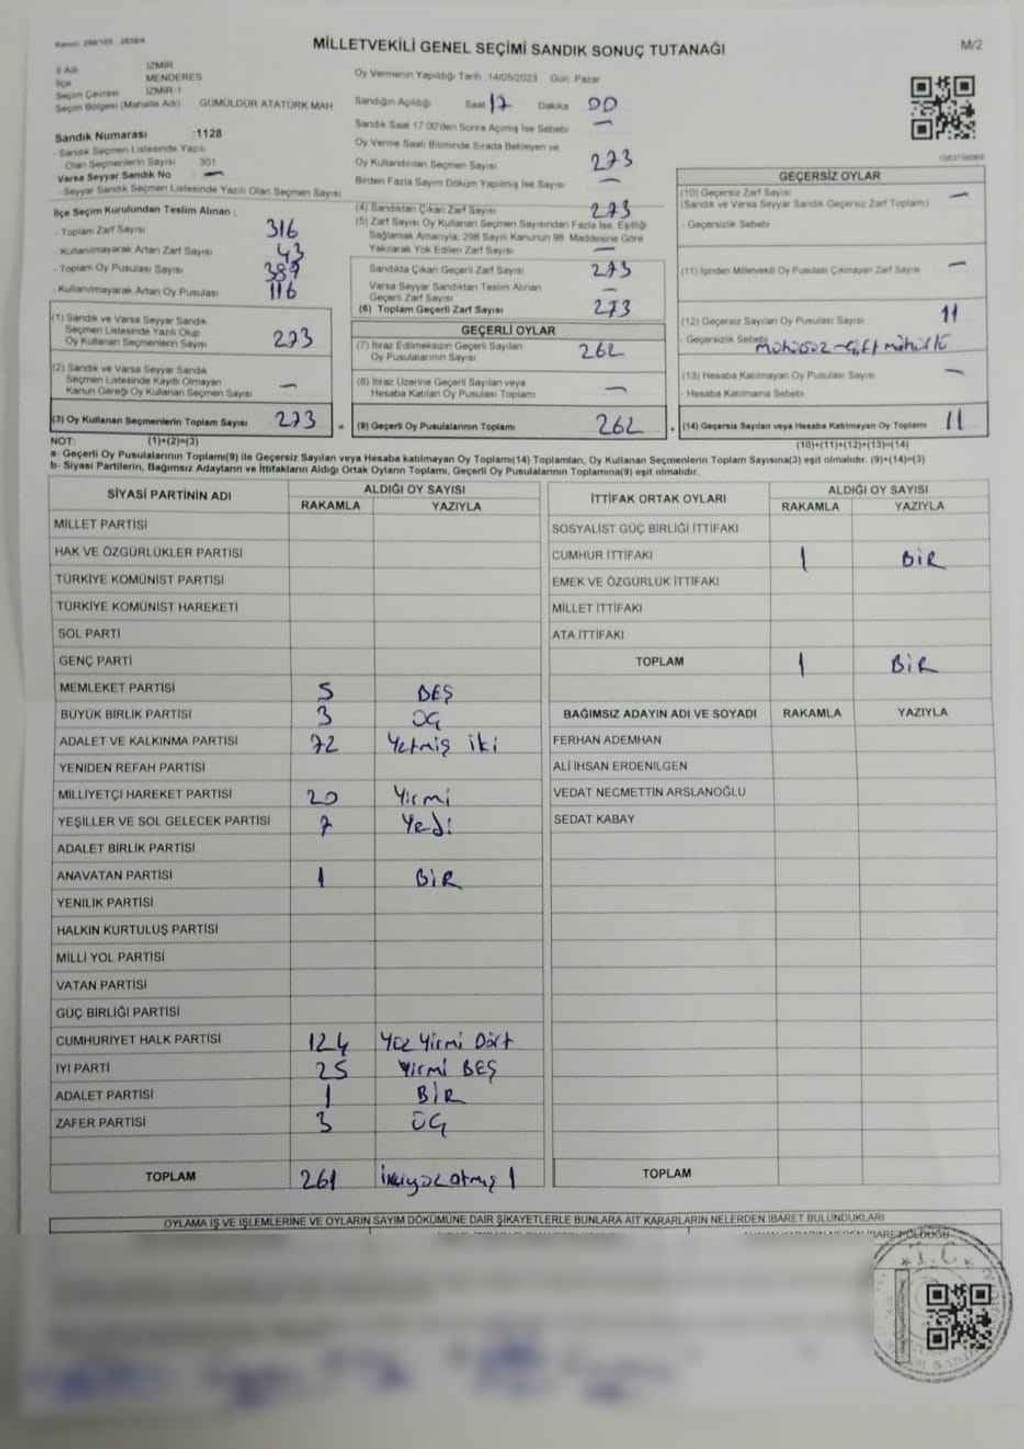 MİLLETVEKİLİ GENEL SEÇİMİ SANDIK SONUÇ TUTANAĞI
M/2
İl Adı İZMİR
İlçe MENDERES
Seçim Çevresi İZMİR-1
Seçim Bölgesi (Mahalle Adı) GÜMÜLDÜR ATATÜRK MAH
Sandık Numarası :1128
Sandık Seçmen Listesinde Yazılı
Olan Seçmenlerin Sayısı 301
Varsa Seyyar Sandık No —
Seyyar Sandık Seçmen Listesinde Yazılı Olan Seçmen Sayısı
İlçe Seçim Kurulundan Teslim Alınan :
- Toplam Zarf Sayısı 316
- Kullanılmayarak Artan Zarf Sayısı 43
- Toplam Oy Pusulası Sayısı 389
- Kullanılmayarak Artan Oy Pusulası 116
(1) Sandık ve Varsa Seyyar Sandık
Seçmen Listesinde Yazılı Olup
Oy Kullanan Seçmenlerin Sayısı 273
(2) Sandık ve Varsa Seyyar Sandık
Seçmen Listesinde Kayıtlı Olmayan
Kanun Gereği Oy Kullanan Seçmen Sayısı —
(3) Oy Kullanan Seçmenlerin Toplam Sayısı 273
Oy Vermenin Yapıldığı Tarih :14/05/2023 Gün: Pazar
Sandığın Açıldığı Saat 17 Dakika 00
Sandık Saat 17:00'den Sonra Açılmış İse Sebebi —
Oy Verme Saati Bitiminde Sırada Bekleyen ve
Oy Kullandırılan Seçmen Sayısı 273
Birden Fazla Sayım Döküm Yapılmış İse Sayısı —
(4) Sandıktan Çıkan Zarf Sayısı 273
(5) Zarf Sayısı Oy Kullanan Seçmen Sayısından Fazla İse, Eşitliği
Sağlamak Amacıyla, 298 Sayılı Kanunun 98. Maddesine Göre
Yakılarak Yok Edilen Zarf Sayısı —
Sandıkta Çıkan Geçerli Zarf Sayısı 273
Varsa Seyyar Sandıktan Teslim Alınan
Geçerli Zarf Sayısı —
(6) Toplam Geçerli Zarf Sayısı 273
GEÇERLİ OYLAR
(7) İtiraz Edilmeksizin Geçerli Sayılan
Oy Pusulalarının Sayısı 262
(8) İtiraz Üzerine Geçerli Sayılan veya
Hesaba Katılan Oy Pusulası Toplamı —
(9) Geçerli Oy Pusulalarının Toplamı 262
GEÇERSİZ OYLAR
(10) Geçersiz Zarf Sayısı —
(Sandık ve Varsa Seyyar Sandık Geçersiz Zarf Toplamı)
- Geçersizlik Sebebi
(11) İçinden Milletvekili Oy Pusulası Çıkmayan Zarf Sayısı —
(12) Geçersiz Sayılan Oy Pusulası Sayısı 11
- Geçersizlik Sebebi Mühürsüz-Çift mühürlü
(13) Hesaba Katılmayan Oy Pusulası Sayısı —
- Hesaba Katılmama Sebebi
(14) Geçersiz Sayılan veya Hesaba Katılmayan Oy Toplamı 11
NOT: (1)+(2)=(3) (10)+(11)+(12)+(13)=(14)
a- Geçerli Oy Pusulalarının Toplamı(9) ile Geçersiz Sayılan veya Hesaba katılmayan Oy Toplamı(14) Toplamları, Oy Kullanan Seçmenlerin Toplam Sayısına(3) eşit olmalıdır. (9)+(14)=(3)
b- Siyasi Partilerin, Bağımsız Adayların ve İttifakların Aldığı Ortak Oyların Toplamı, Geçerli Oy Pusulalarının Toplamına(9) eşit olmalıdır.
SİYASİ PARTİNİN ADI ALDIĞI OY SAYISI
RAKAMLA YAZIYLA
MİLLET PARTİSİ
HAK VE ÖZGÜRLÜKLER PARTİSİ
TÜRKİYE KOMÜNİST PARTİSİ
TÜRKİYE KOMÜNİST HAREKETİ
SOL PARTİ
GENÇ PARTİ
MEMLEKET PARTİSİ 5 BEŞ
BÜYÜK BİRLİK PARTİSİ 3 ÜÇ
ADALET VE KALKINMA PARTİSİ 72 Yetmiş iki
YENİDEN REFAH PARTİSİ
MİLLİYETÇİ HAREKET PARTİSİ 20 Yirmi
YEŞİLLER VE SOL GELECEK PARTİSİ 7 Yedi
ADALET BİRLİK PARTİSİ
ANAVATAN PARTİSİ 1 BİR
YENİLİK PARTİSİ
HALKIN KURTULUŞ PARTİSİ
MİLLİ YOL PARTİSİ
VATAN PARTİSİ
GÜÇ BİRLİĞİ PARTİSİ
CUMHURİYET HALK PARTİSİ 124 Yüz Yirmi Dört
İYİ PARTİ 25 Yirmi BEŞ
ADALET PARTİSİ 1 BİR
ZAFER PARTİSİ 3 ÜÇ
TOPLAM 261 ikiyüz atmış 1
İTTİFAK ORTAK OYLARI ALDIĞI OY SAYISI
RAKAMLA YAZIYLA
SOSYALİST GÜÇ BİRLİĞİ İTTİFAKI
CUMHUR İTTİFAKI 1 BİR
EMEK VE ÖZGÜRLÜK İTTİFAKI
MİLLET İTTİFAKI
ATA İTTİFAKI
TOPLAM 1 BİR
BAĞIMSIZ ADAYIN ADI VE SOYADI RAKAMLA YAZIYLA
FERHAN ADEMHAN
ALİ İHSAN ERDENİLGEN
VEDAT NECMETTİN ARSLANOĞLU
SEDAT KABAY
TOPLAM
OYLAMA İŞ VE İŞLEMLERİNE VE OYLARIN SAYIM DÖKÜMÜNE DAİR ŞİKAYETLERLE BUNLARA AİT KARARLARIN NELERDEN İBARET BULUNDUKLARI
T.C.